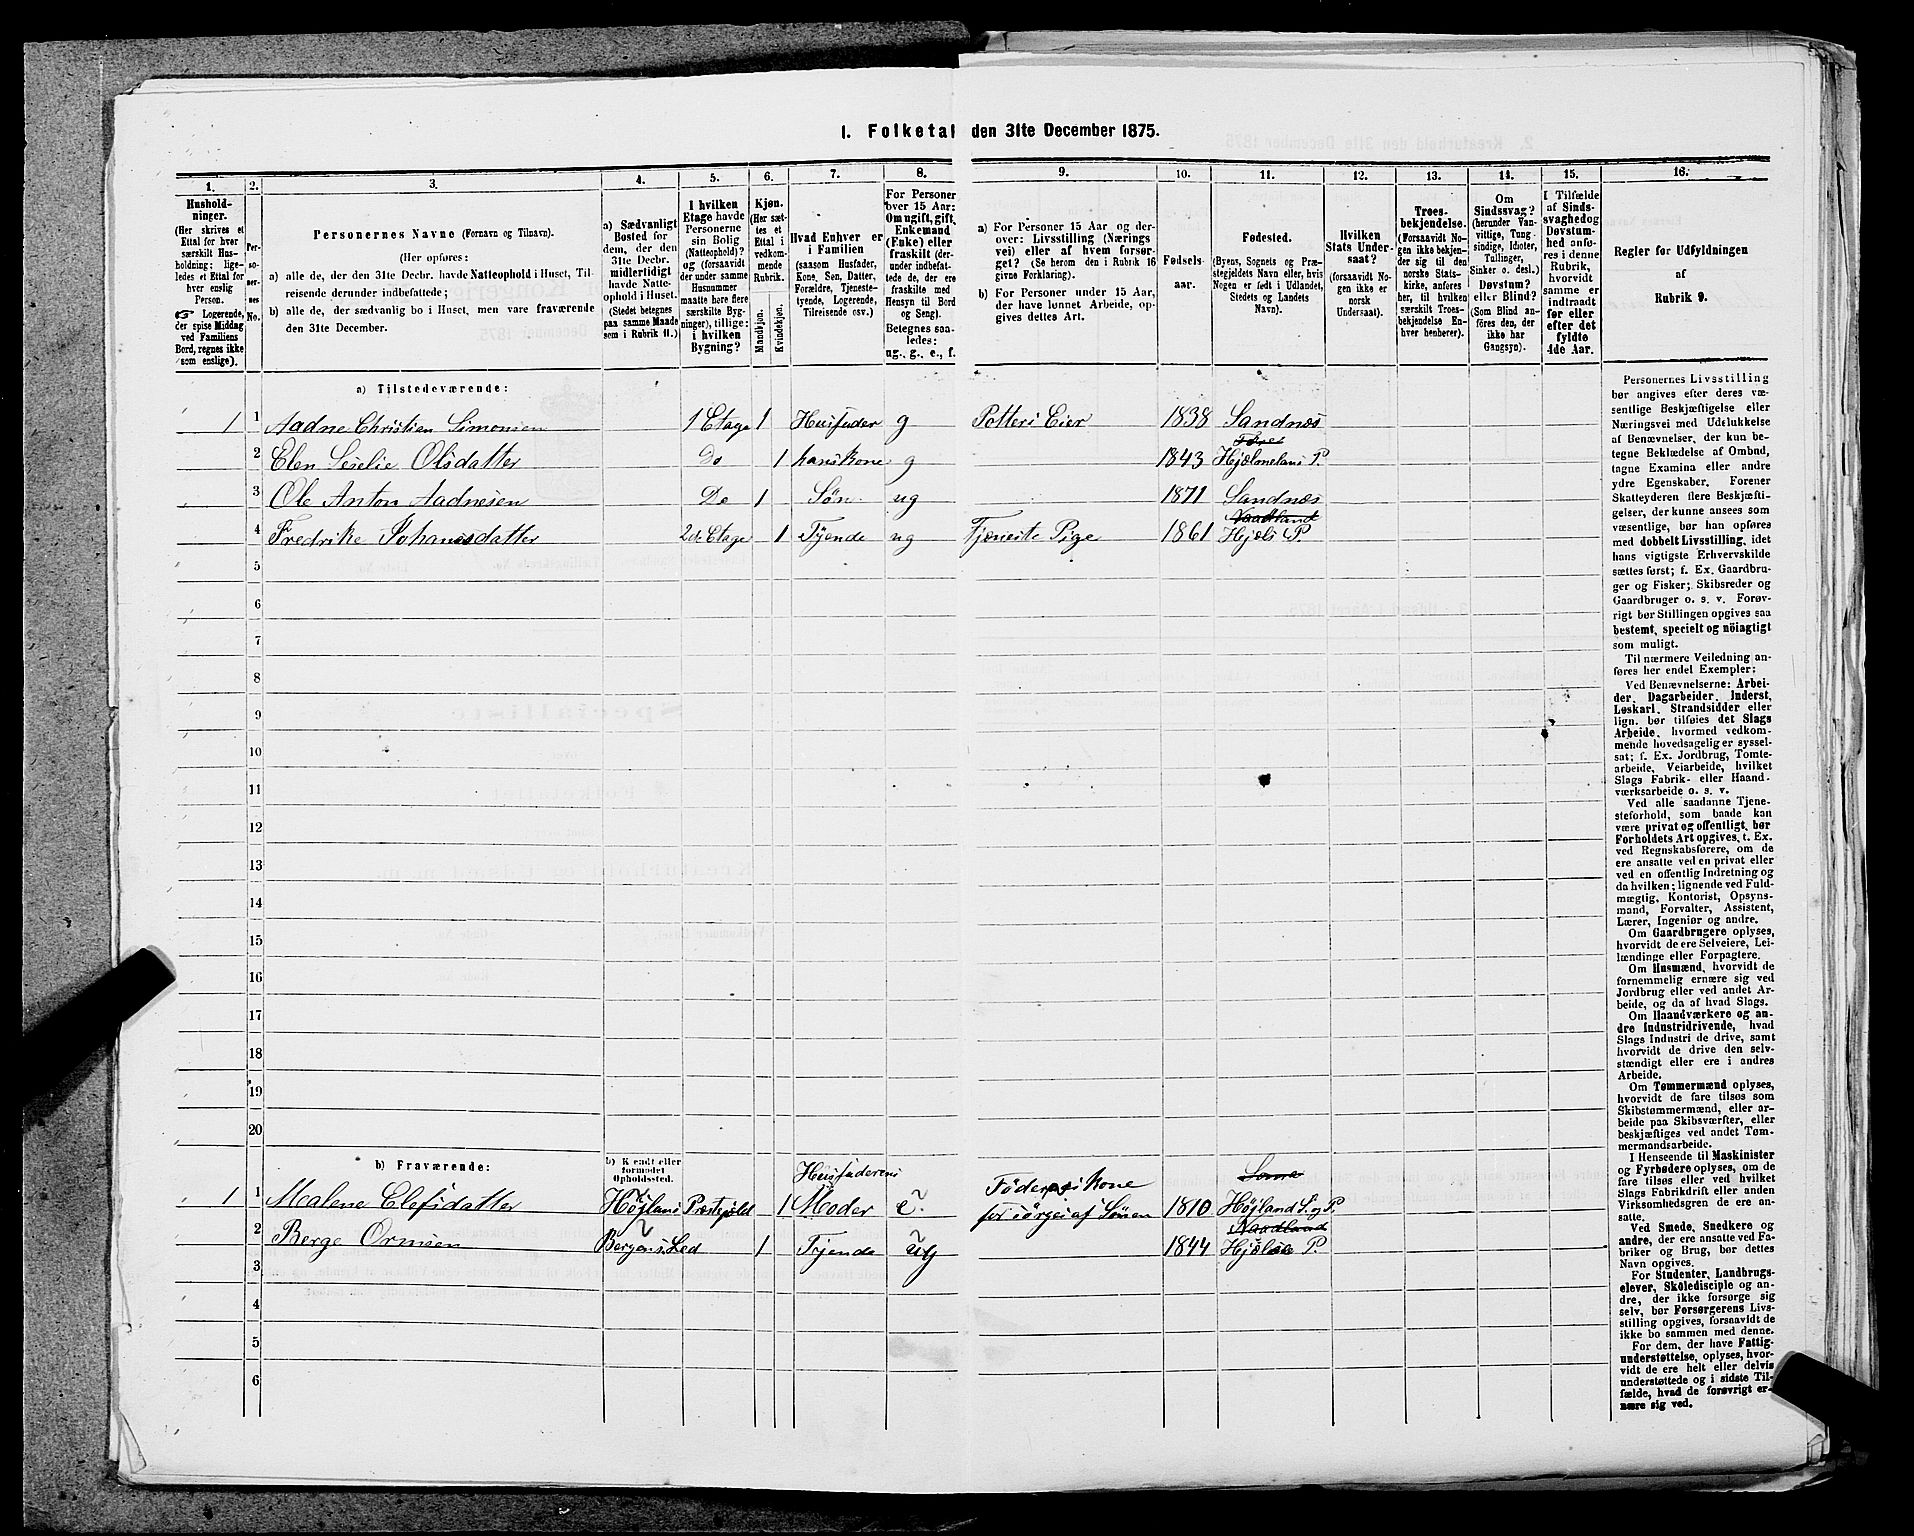 1. Folketal den 31te December 1875.
1. 2. 3. 4. 5. 6. 7. 8. 9. 10. 11. 12. 13. 14. 15. 16.
Hushold-
ninger.
(Her skrives et
Ettal for hver
særskilt Hus-
holdning; lige-
ledes et Ettal for
hver enslig
Person.
☞ Logerende,
der spise Middag
ved Familiens
Bord, regnes ikke
som enslige).
Per-
so-
ner-
nes
No.
Personernes Navne (Fornavn og Tilnavn).
(Her opføres:
a) alle de, der den 31te Decbr. havde Natteophold i Huset, Til-
reisende derunder indbefattede;
b) alle de, der sædvanlig bo i Huset, men vare fraværende
den 31te December.
a) Sædvanligt
Bosted for
dem, der den
31te Decbr.
midlertidigt
havde Natte-
ophold i Huset.
(Stedet betegnes
paa samme Maade
som i Rubrik 11.)
I hvilken
Etage havde
Personerne
sin Bolig
(Natteophold)?
og (forsaavidt
der under samme
Husnummer
maatte høre flere
særskilte Byg-
ninger), tillige:
i hvilken
Bygning?
Kjøn.
(Her sæt-
tes et
Ettal i
vedkom-
mende
Rubrik.
Mandkjøn.
Kvindekjøn.
Hvad Enhver er
i Familien
(saasom Husfader,
Kone, Søn, Datter,
Forældre, Tjeneste-
tyende, Logerende,
Tilreisende osv.)
For Personer
over 15 Aar:
Om ugift, gift,
Enkemand
(Enke) eller
fraskilt (der-
under indbefat-
tede de, der ere
fraskilte med
Hensyn til Bord
og Seng).
Betegnes saa-
ledes:
ug., g., e., f.
a) For Personer 15 Aar og der-
over: Livsstilling (Nærings
vei) eller af hvem forsør-
get? (Se herom den i Rubrik 16
givne Forklaring).
b) For Personer under 15 Aar,
der have lønnet Arbeide, op-
gives dettes Art.
Fødsels-
aar.
Fødested.
(Byens, Sognets og Præ-
stegjeldets Navn eller, hvis
Nogen er født i Udlandet,
Stedets og Landets
Navn).
Hvilken
Stats Under-
saat?
(forsaavidt No-
gen ikke er
norsk
Undersaat).
Troes-
bekjendelse.
(Forsaavidt No-
gen ikke bekjen-
der sig til den
norske Stats-
kirke, anføres
her, til hvilken
særskilt Troes-
bekjendelse En-
hver henhører).
Om
Sindssvag?
(herunder Van-
vittige, Tung-
sindige, Idioter,
Tullinger,
Sinker o. desl.)
Døvstum?
eller Blind?
(Som Blind an-
føres den, der
ikke har
Gangsyn).
I Tilfælde
af Sinds-
svaghed og
Døvstum-
hed anfø-
res i denne
Rubrik,
hvorvidt
samme er
indtraadt
før eller
efter det
fyldte
4de Aar.
Regler for Udfyldningen
af
Rubrik 9.
a) Tilstedeværende:
1 1 Aadne Christian Simonsen 1 Etage 1 Husfader g Potteri Eier 1838 Sandnæs
2 Elen Seselie Olsdatter Do 1 hans Kone g 1843 Hjelmelans P.
3 Ole Anton Aadnesen Do 1 Søn ug 1871 Sandnæs
Naadland
4 Fredrike Johanesdatter 2de Etage 1 Tyende ug Tjeneste Pige 1861 Hjels P.
5
6
7
8
9
10
11
12
13
14
15
16
17
18
19
20
b) Fraværende:
b) Kjendt eller
formodet
Opholdssted.
Husfaderens
1 1 Malene Elefsdatter Høylans Præstegield 1 Moder e. Föderaads Kone
for sörges af Sönen 1810 Høyland S. og P.
Naadland
2 Berge Ormsen Bergens Led 1 Tyende ug 1844 Hjelms P.
3
4
5
6
Personernes Livsstilling
bør angives efter deres væ-
sentlige Beskjæftigelse eller
Næringsvei med Udelukkelse
af Benævnelser, der kun be-
tegne Beklædelse af Ombud,
tagne Examina eller andre
ydre Egenskaber. Forener
Skatteyderen flere Beskjæfti-
gelser, der kunne ansees som
væsentlige, bør han opføres
med dobbelt Livsstilling, idet
hans vigtigste Erhvervskilde
sættes først; f. Ex. Gaardbru-
ger og Fisker; Skibsreder og
Gaardbruger o. s. v. Forøv-
rigt bør Stillingen opgives saa
bestemt, specielt og nöiagtigt
som muligt.
Til nærmere Veiledning an-
føres her endel Exempler:
Ved Benævnelserne: Arbei-
der, Dagarbeider, Inderst,
Løskarl, Strandsidder eller
lign. bør tilføies det Slags
Arbeide, hvormed vedkom-
mende hovedsagelig er syssel-
sat; f. Ex. Jordbrug, Tomte-
arbeide, Veiarbeide, hvilket
Slags Fabrik- eller Haand-
værksarbeide o. s. v.
Ved alle saadanne Tjene-
steforhold, som baade kan
være privat og offentligt, bør
Forholdets Art opgives, t. Ex.
ved Regnskabsførere, om de
ere ansatte ved en privat eller
ved en offentlig Indretning og
da hvilken; lignende ved Fuld-
mægtig, Kontorist, Opsyns-
mand, Forvalter, Assistent,
Lærer, Ingeniør og andre.
Om Gaardbrugere oplyses,
hvorvidt de ere Selveiere, Lei-
lændinge eller Forpagtere.
Om Husmænd, hvorvidt de
fornemmelig ernære sig ved
Jordbrug eller ved andet Ar-
beide, og da af hvad Slags.
Om Haandværkere og an-
dre Industridrivende, hvad
Slags Industri de drive, samt
hvorvidt de drive den selv-
stændigt eller ere i andres
Arbeide.
Om Tømmermænd oplyses,
hvorvidt de fare tilsøs som
Skibstømmermænd, eller ar-
beide paa Skibsværfter, eller
beskjæftiges ved andet Tøm-
mermandsarbeide.
I Henseende til Maskinister
og Fyrbødere oplyses, om de
fare tilsøs eller ved hvilket
Slags Fabrikdrift eller anden
Virksomhedsgren de ere an-
satte.
Ved Smede, Snedkere og
andre, der ere ansatte ved Fa-
briker og Brug, bør dettes
Navn opgives.
For Studenter, Landbrugs-
elever, Skoledisciple og an-
dre, der ikke forsørge sig
selv, bør Forsørgerens Livs-
stilling opgives, forsaavidt de
ikke bo sammen med denne.
For dem, der have Fattig-
understøttelse, oplyses, hvor-
vidt de ere helt eller delvis
understøttede og i sidste Til-
fælde, hvad de forøvrigt er-
nære sig ved.